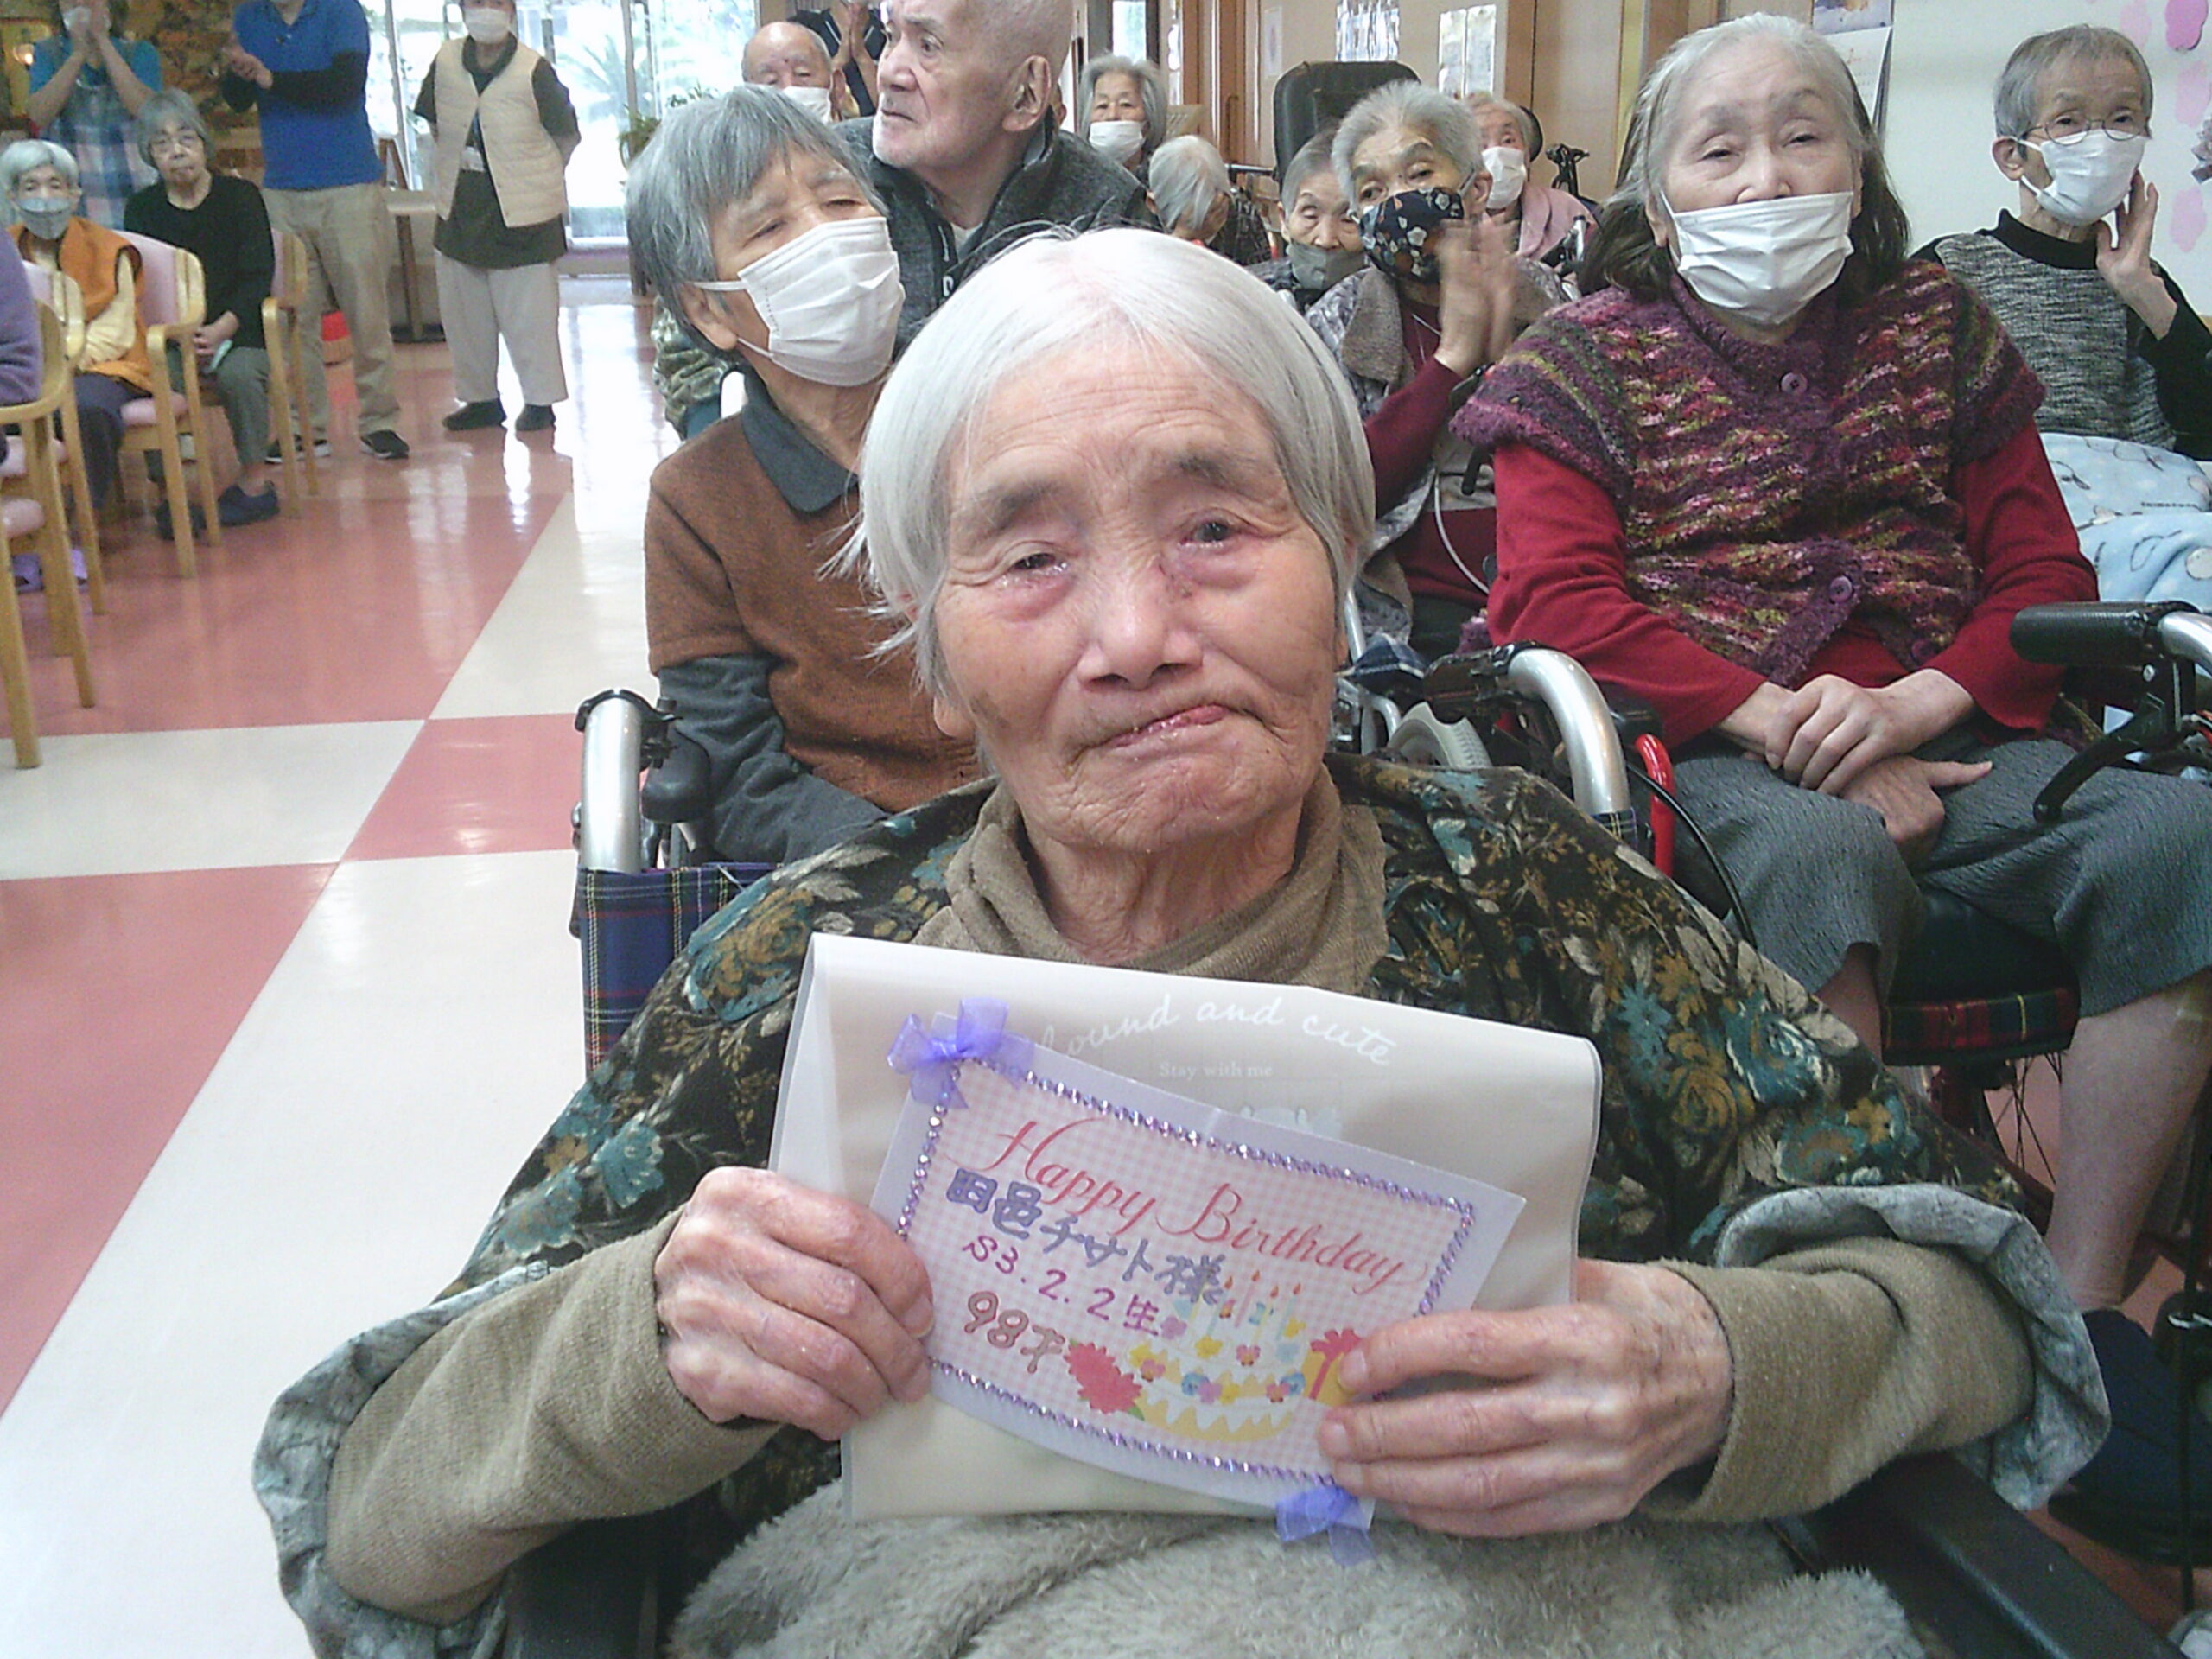 hound and cute
Stay with me
Happy Birthday
田邑チサト様
S3.2.2生
98才